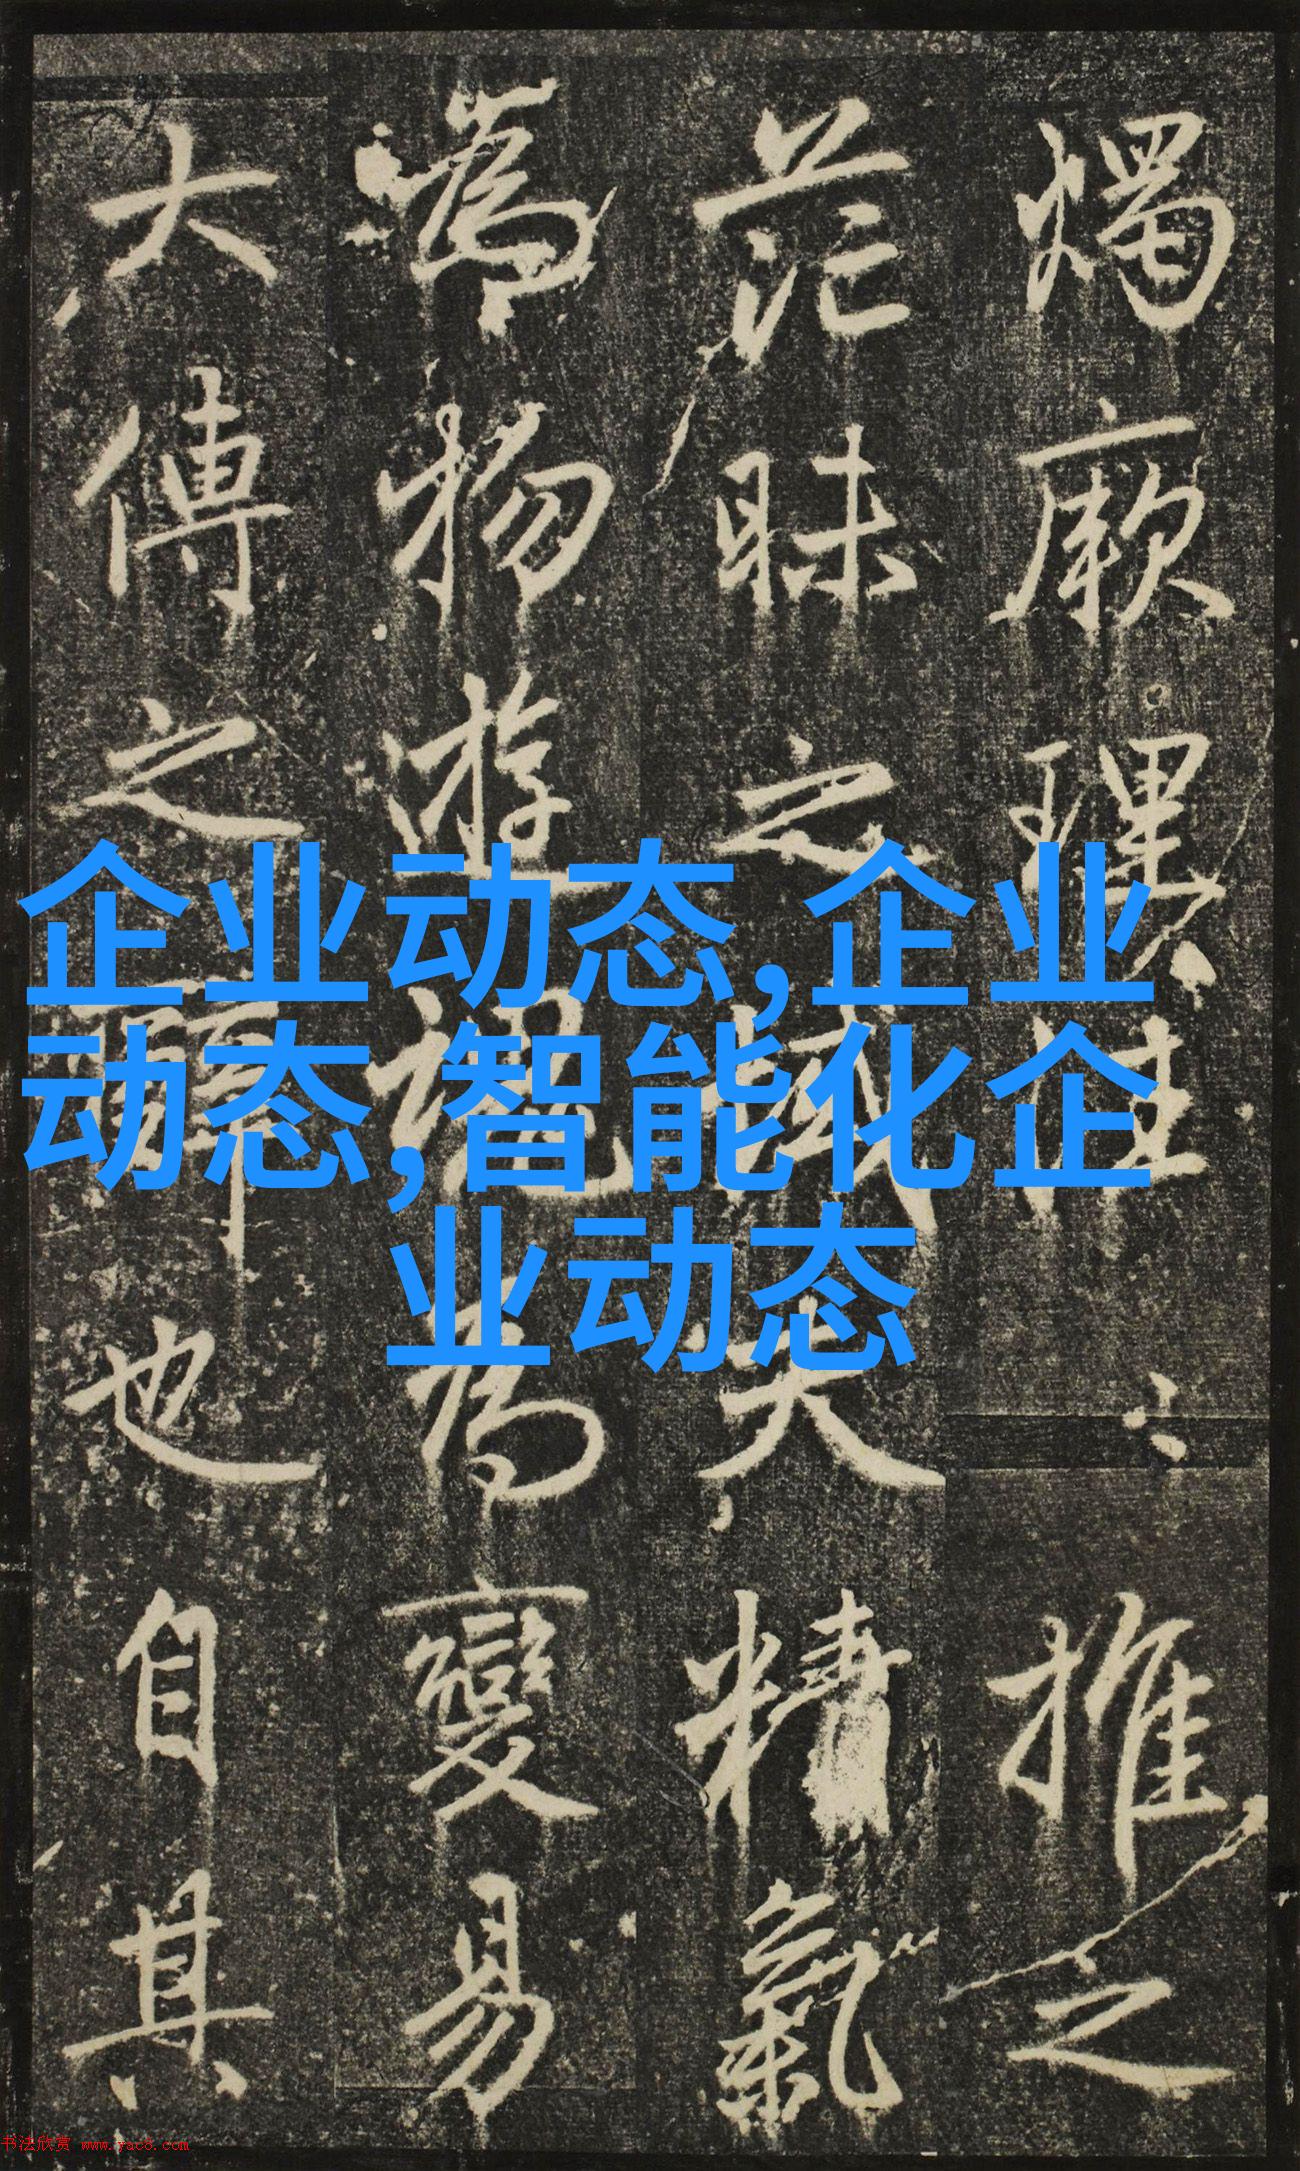 燭厥理推之
茫昧之域夫精氣
為物遊魂為變易
大傳之辭也自其
企业动态,企业
动态,智能化企
业动态
书法欣赏 www.yac8.com